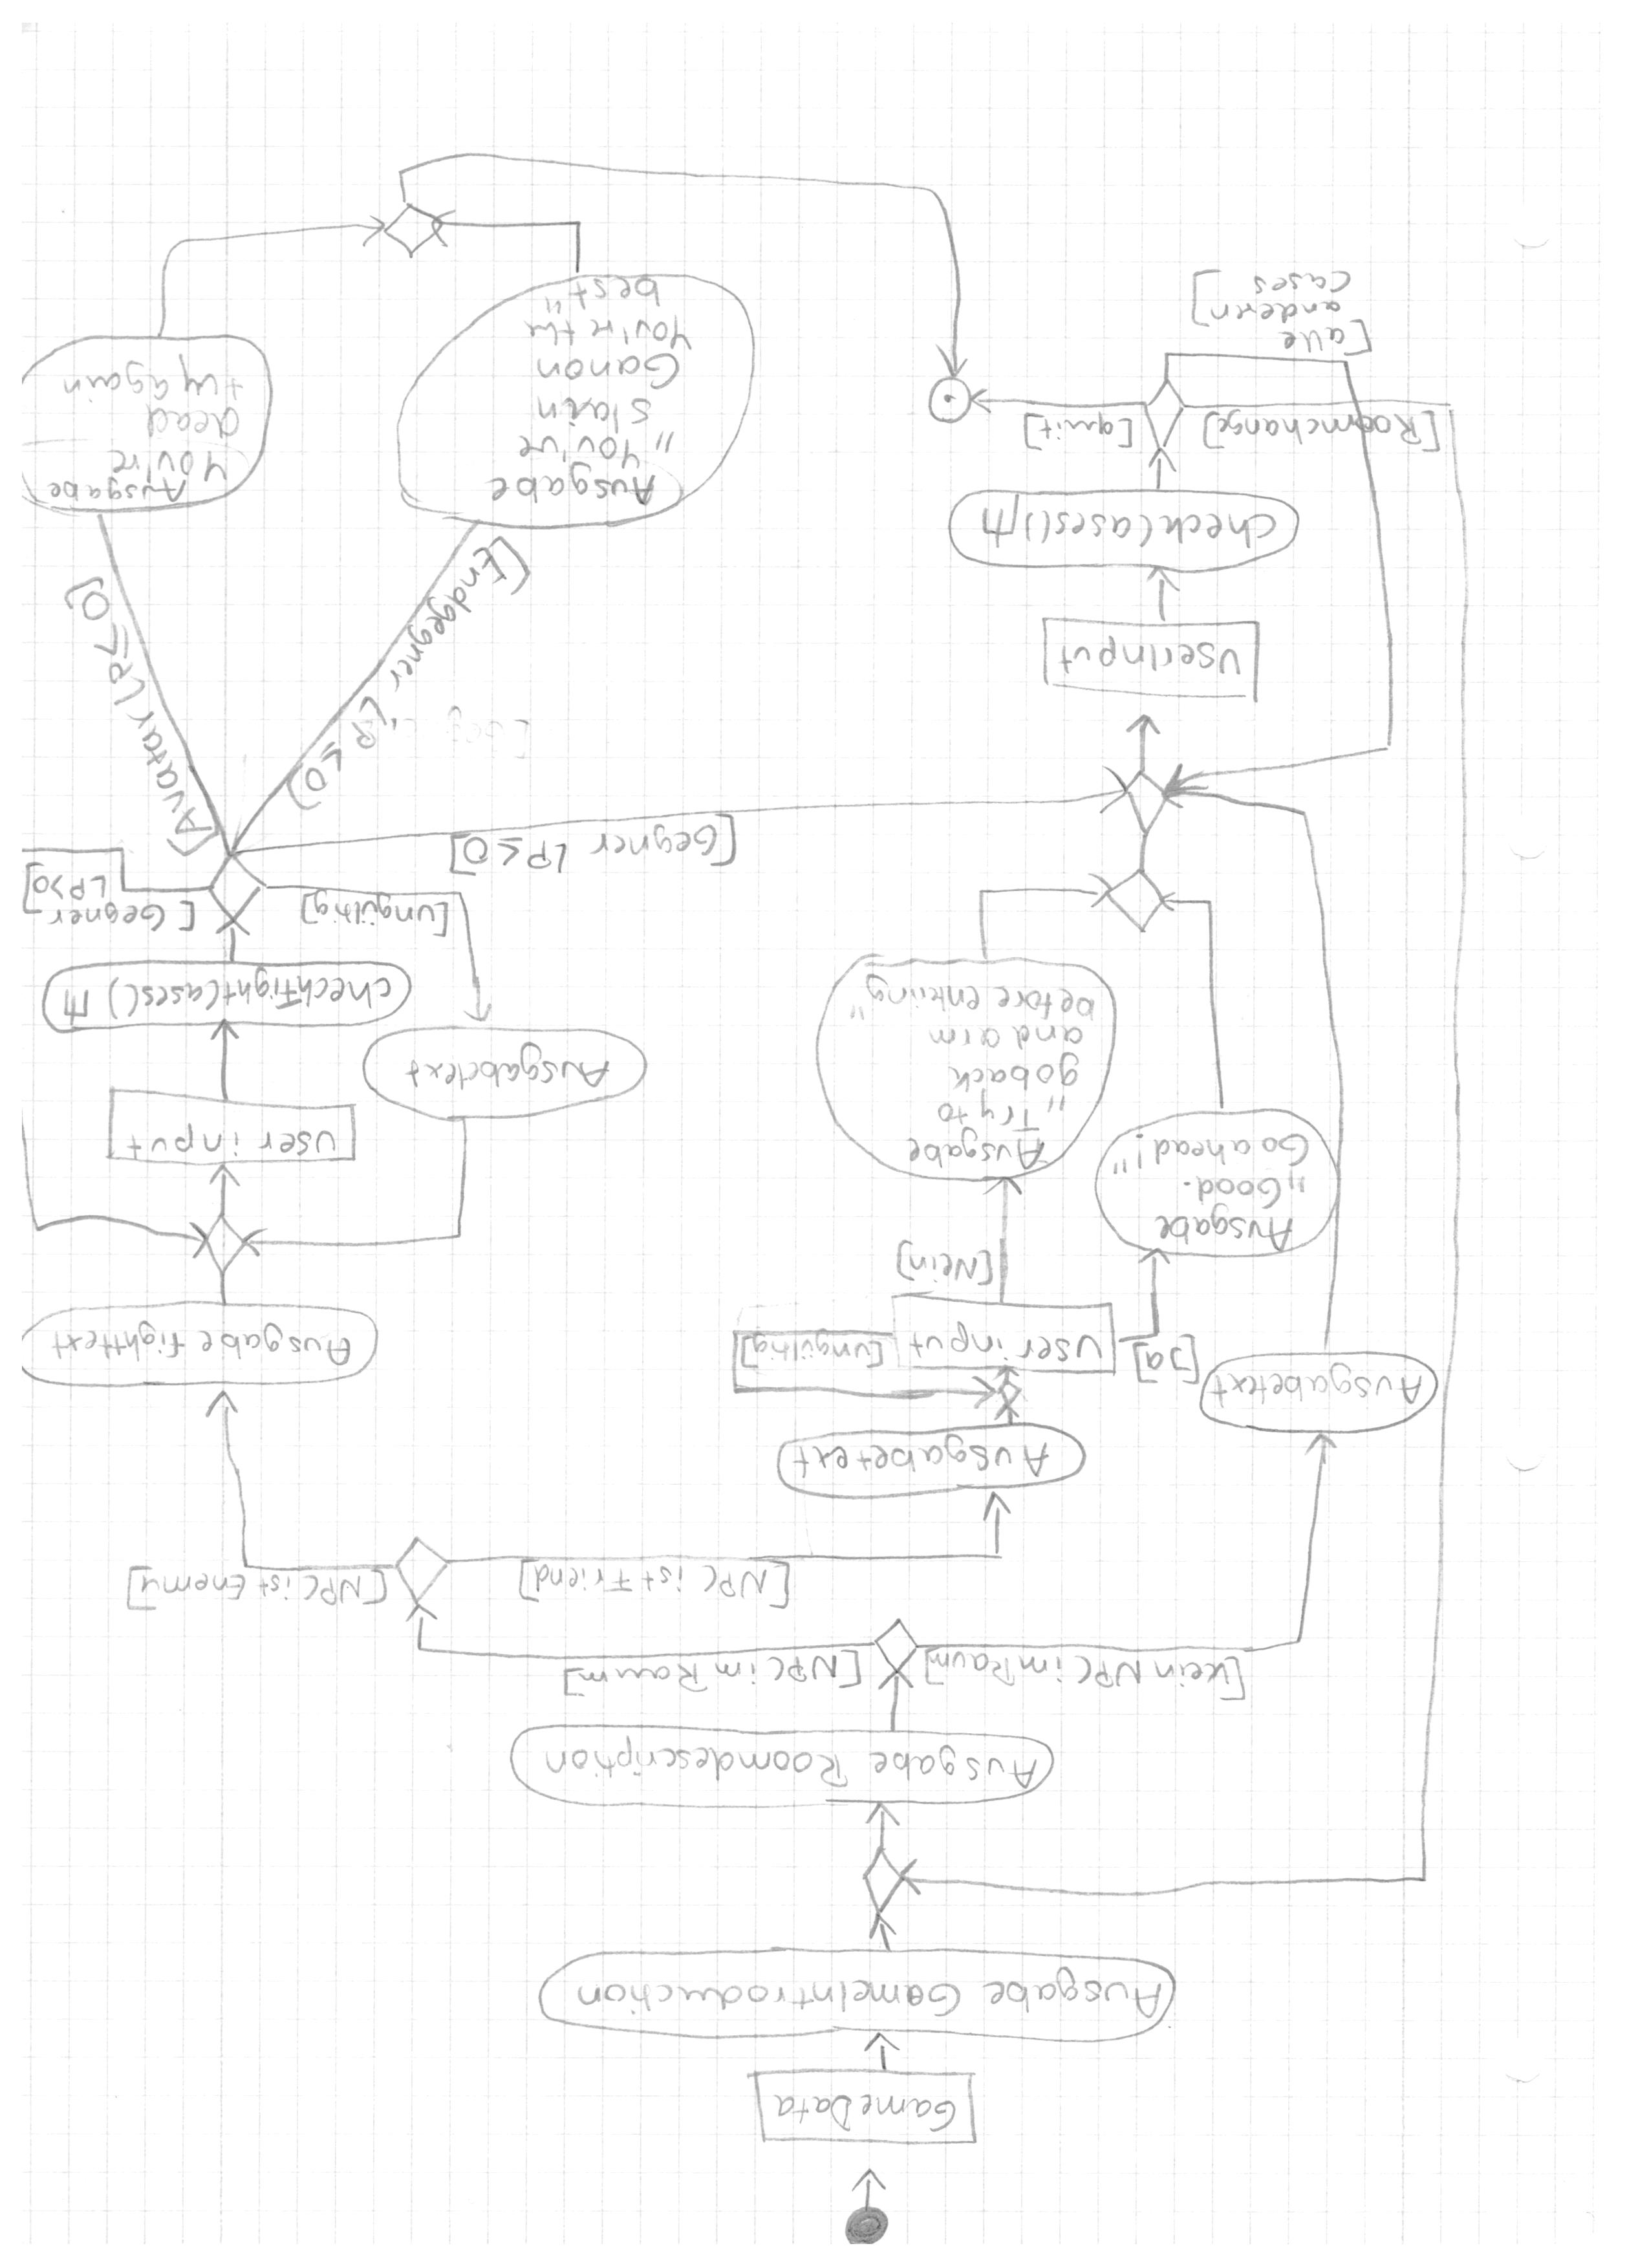 GameData
Ausgabe GameIntroduction
Ausgabe Roomdescription
[kein NPC im Raum]
[NPC im Raum]
[NPC ist Friend]
[NPC ist Enemy]
Ausgabetext
Ausgabetext
[Ja]
user input
[ungültig]
[Nein]
Ausgabe
„Good.
Go ahead!"
Ausgabe
„Try to
go back
and arm
before entering"
Ausgabe fighttext
user input
Ausgabetext
checkFightCases()
[ungültig]
[Gegner
LP>0]
[Gegner LP ≤ 0]
[Endgegner LP ≤ 0]
[Avatar LP ≤ 0]
UserInput
checkCases()
[Roomchange]
[quit]
[alle
anderen
Cases]
Ausgabe
„You've
slain
Ganon
You're the
best"
Ausgabe
You're
dead
try again